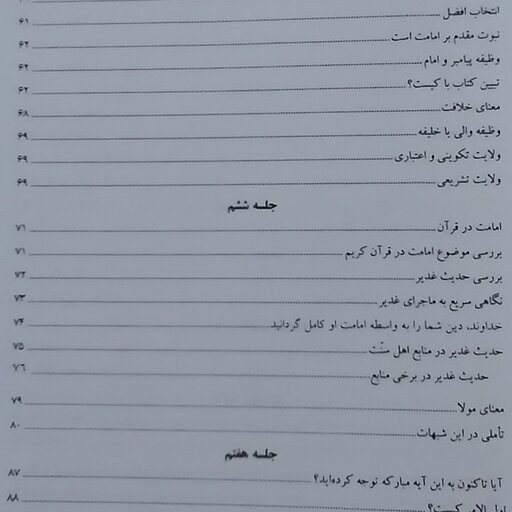 انتخاب افضل ..... ۶۱
نبوت مقدم بر امامت است ..... ۶۲
وظیفه پیامبر و امام ..... ۶۲
تبیین کتاب با کیست؟ ..... ۶۴
معنای خلافت ..... ۶۸
وظیفه والی یا خلیفه ..... ۶۹
ولایت تکوینی و اعتباری ..... ۶۹
ولایت تشریعی ..... ۶۹
جلسه ششم
امامت در قرآن ..... ۷۱
بررسی موضوع امامت در قرآن کریم ..... ۷۱
بررسی حدیث غدیر ..... ۷۲
نگاهی سریع به ماجرای غدیر ..... ۷۳
خداوند، دین شما را به واسطه امامت او کامل گردانید ..... ۷۴
حدیث غدیر در منابع اهل سنّت ..... ۷۵
حدیث غدیر در برخی منابع ..... ۷۶
معنای مولا ..... ۷۹
تأملی در این شبهات ..... ۸۰
جلسه هفتم
آیا تاکنون به این آیه مبارکه توجه کرده‌اید؟ ..... ۸۷
اولی الامر کیست؟ ..... ۸۸